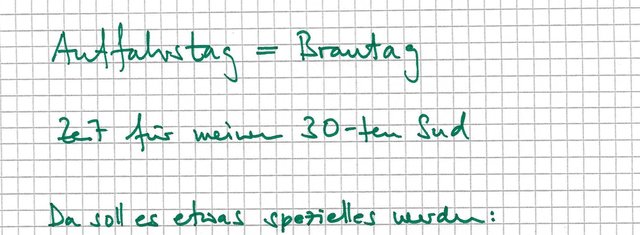 Auffahrstag = Brautag
Zeit für meinen 30-ten Sud
Da soll es etwas spezielles werden: